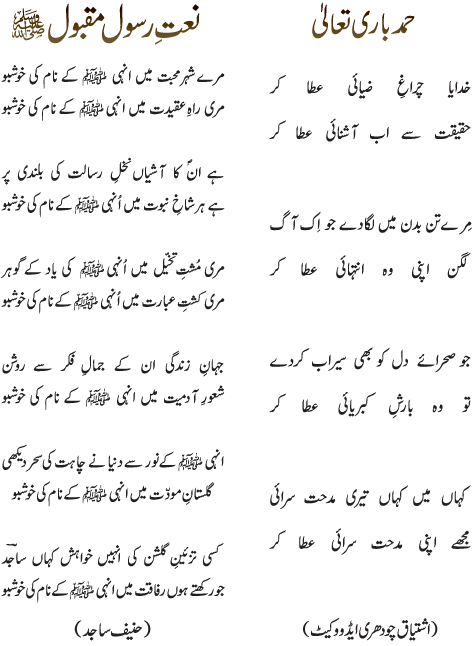 حمد باری تعالیٰ
خدایا چراغِ ضیائی عطا کر
حقیقت سے اب آشنائی عطا کر
مِرے تن بدن میں لگادے جو اِک آگ
لگن اپنی وہ انتہائی عطا کر
جو صحرائے دل کو بھی سیراب کردے
تو وہ بارشِ کبریائی عطا کر
کہاں میں کہاں تیری مدحت سرائی
مجھے اپنی مدحت سرائی عطا کر
(اشتیاق چودھری ایڈووکیٹ)
نعتِ رسول مقبول ﷺ
مرے شہر محبت میں انہی ﷺ کے نام کی خوشبو
مری راہِ عقیدت میں انہی ﷺ کے نام کی خوشبو
ہے انؐ کا آشیاں نخلِ رسالت کی بلندی پر
ہے ہر شاخِ نبوت میں اُنہی ﷺ کے نام کی خوشبو
مری مُشتِ تخیّل میں اُنہی ﷺ کی یاد کے گوہر
مری کشتِ عبارت میں اُنہی ﷺ کے نام کی خوشبو
جہانِ زندگی ان کے جمالِ فکر سے روشن
شعورِ آدمیت میں انہی ﷺ کے نام کی خوشبو
انہی ﷺ کے نور سے دنیا نے چاہت کی سحر دیکھی
گلستانِ مودّت میں انہی ﷺ کے نام کی خوشبو
کسی تزئینِ گلشن کی انہیں خواہش کہاں ساجدؔ
جو رکھتے ہوں رفاقت میں انہی ﷺ کے نام کی خوشبو
(حنیف ساجد)